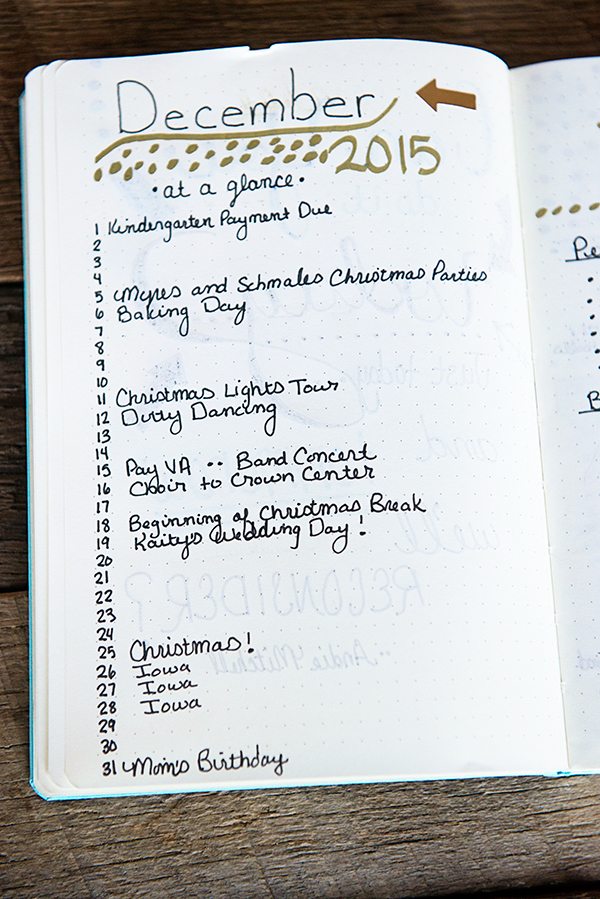 December
2015
•at a glance•
1 Kindergarten Payment Due
2
3
4
5 Mepes and Schmales Christmas Parties
6 Baking Day
7
8
9
10
11 Christmas Lights Tour
12 Dirty Dancing
13
14
15 Pay VA •• Band Concert
16 Choir to Crown Center
17
18 Beginning of Christmas Break
19 Kaity's Wedding Day!
20
21
22
23
24
25 Christmas!
26 Iowa
27 Iowa
28 Iowa
29
30
31 Mom's Birthday